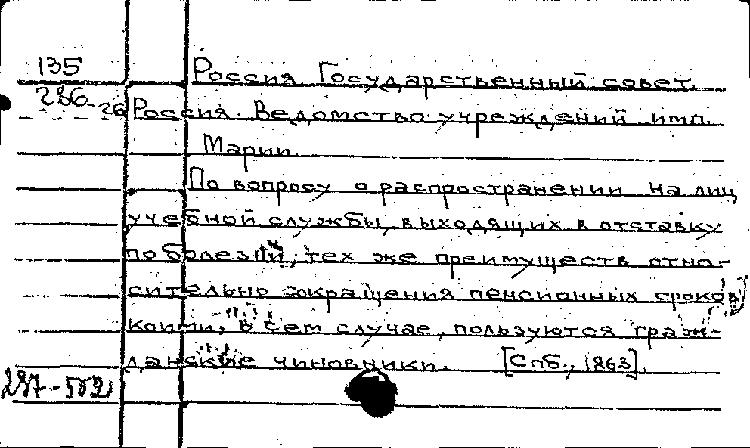 135 Россия Государственный совет.
286-26 Россия. Ведомство учреждений имп.
Марии.
По вопросу о распространении на лиц
учебной службы, выходящих в отставку
по болезни, тех же преимуществ отно-
сительно сокращения пенсионных сроков,
коими, в сем случае, пользуются граж-
данские чиновники. [Спб., 1863].
287-592